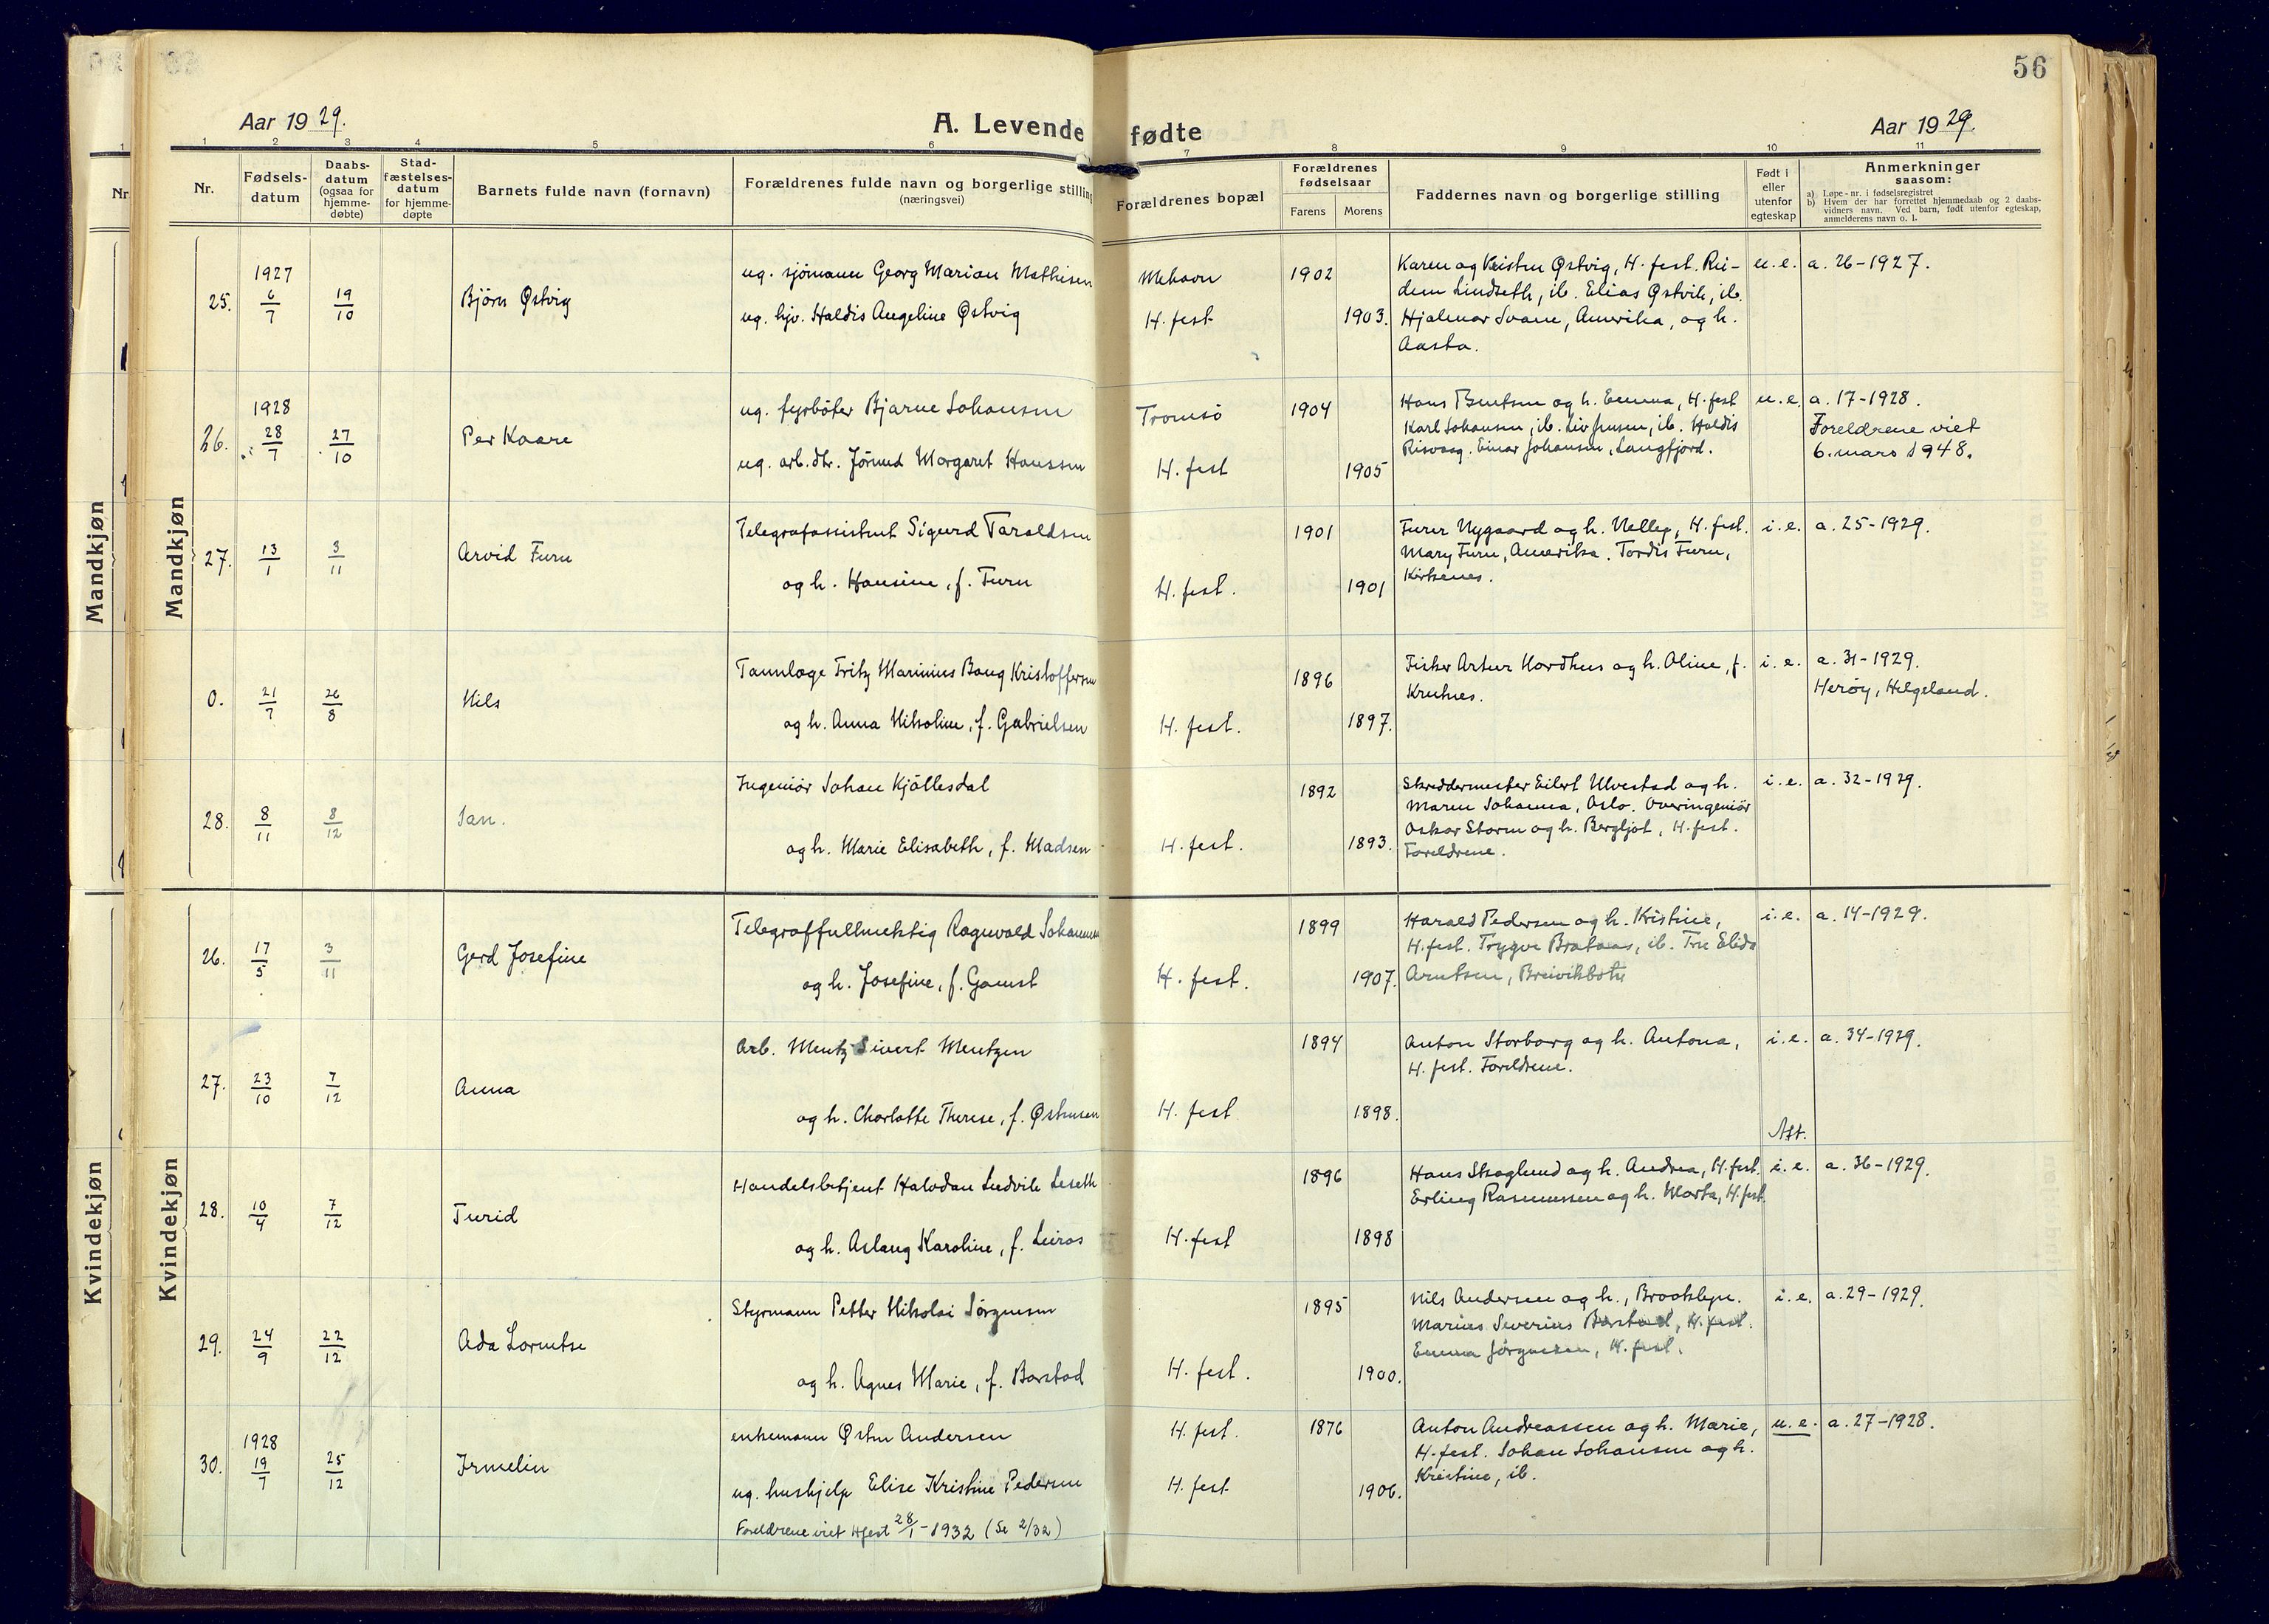 56
Aar 1929.
A. Levende fødte
Aar 1929.
1 2 3 4 5 6 7 8 9 10 11
Nr.
Fødsels-
datum
Daabs-
datum
(ogsaa for
hjemme-
døbte)
Stad-
fæstelses-
datum
for hjemme-
døpte
Barnets fulde navn (fornavn)
Forældrenes fulde navn og borgerlige stilling
(næringsvei)
Forældrenes bopæl
Forældrenes
fødselsaar
Farens Morens
Faddernes navn og borgerlige stilling
Født i
eller
utenfor
egteskap
Anmerkninger
saasom:
a) Løpe-nr. i fødselsregistret
b) Hvem der har forrettet hjemmedaab og 2 daabs-
vidners navn. Ved barn, født utenfor egteskap,
anmelderens navn o. l.
Nr
Mandkjøn
Mandkjøn
25.
1927
6/7
19/10
Bjørn Østvig
ug. sjömann Georg Marion Mathisen
ug. hjv. Haldis Angeline Østvig
Mehavn
H. fest
1902
1903.
Karen og Kristen Østvig, H. fest. Rei-
dun Lindseth, ib. Elias Østvik, ib.
Hjalmar Svane, Amerika, og h.
Aasta.
u. e.
a. 26-1927.
26.
1928
28/7
27/10
Per Kaare
ug. fyrböter Bjarne Johansen
ug. arb. dtr. Jörund Margaret Hanssen
Tromsö
H. fest
1904
1905
Hans Bentsen og h. Emma, H. fest
Karl Johansen, ib. Liv Jensen, ib. Haldis
Risvaag. Einar Johansen, Langfjord.
u. e.
a. 17-1928.
Foreldrene viet
6. mars 1948.
27.
13/1
3/11
Arvid Furu
Telegrafassistent Sigurd Taraldsen
og h. Hansine, f. Furu
H. fest.
1901
1901
Furer Nygaard og h. Nelley, H. fest.
Mary Furu, Amerika. Tordis Furu,
Kirkenes.
i. e.
a. 25-1929.
0.
21/7
26/8
Nils
Tannlæge Fritz Marinius Baug Kristoffersen
og h. Anna Nikoline, f. Gabrielsen
H. fest.
1896
1897.
Fisker Artur Nordhus og h. Oline, f.
Krutnes.
i. e.
a. 31-1929.
Herøy, Helgeland.
28.
8/11
8/12
Jan.
Ingeniör Johan Kjöllesdal
og h. Marie Elisabeth, f. Madsen
H. fest.
1892
1893.
Skreddermester Eilert Ulvestad og h.
Maren Johanna, Oslo. Overingeniör
Oskar Storm og h. Bergljot, H. fest.
Foreldrene.
i. e.
a. 32-1929.
Kvindekjøn
Kvindekjøn
26.
17/5
3/11
Gerd Josefine
Telegraffullmektig Ragnvald Johannesen
og h. Josefine, f. Gamst
H. fest.
1899
1907.
Harald Pedersen og h. Kristine,
H. fest. Trygve Brataas, ib. Fru Elida
Arntsen, Breivikbotn
i. e.
a. 14-1929.
27.
23/10
7/12
Anna
Arb. Mentz Sivert Mentzen
og h. Charlotte Therese, f. Østensen
H. fest
1894
1898.
Anton Storborg og h. Antona,
H. fest. Foreldrene.
i. e.
a. 34-1929.
Att.
28.
10/4
7/12
Turid
Handelsbetjent Halvdan Ludvik Leseth
og h. Aslaug Karoline, f. Leiros
H. fest
1896
1898
Hans Skoglund og h. Andrea, H. fest.
Erling Rasmussen og h. Marta, H. fest.
i. e.
a. 36-1929.
29.
24/9
22/12
Ada Lorentse
Styrmann Petter Nikolai Jörgensen
og h. Agnes Marie, f. Barstad
H. fest.
1895
1900.
Nils Andersen og h., Brooklyn.
Marius Severius Barstad, H. fest.
Emma Jörgensen, H. fest.
i. e.
a. 29-1929.
30.
1928
19/7
25/12
Irmelin
enkemann Østen Andersen
ug. hushjelp Elise Kristine Pedersen
Foreldrene viet Hfest 28/1-1932 (Se 2/32)
H. fest.
H. fest
1876
1906.
Anton Andreassen og h. Marie,
H. fest. Johan Johansen og h.
Kristine, ib.
u. e.
a. 27-1928.